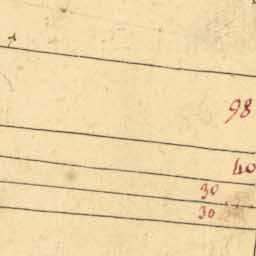 98
40
30
30